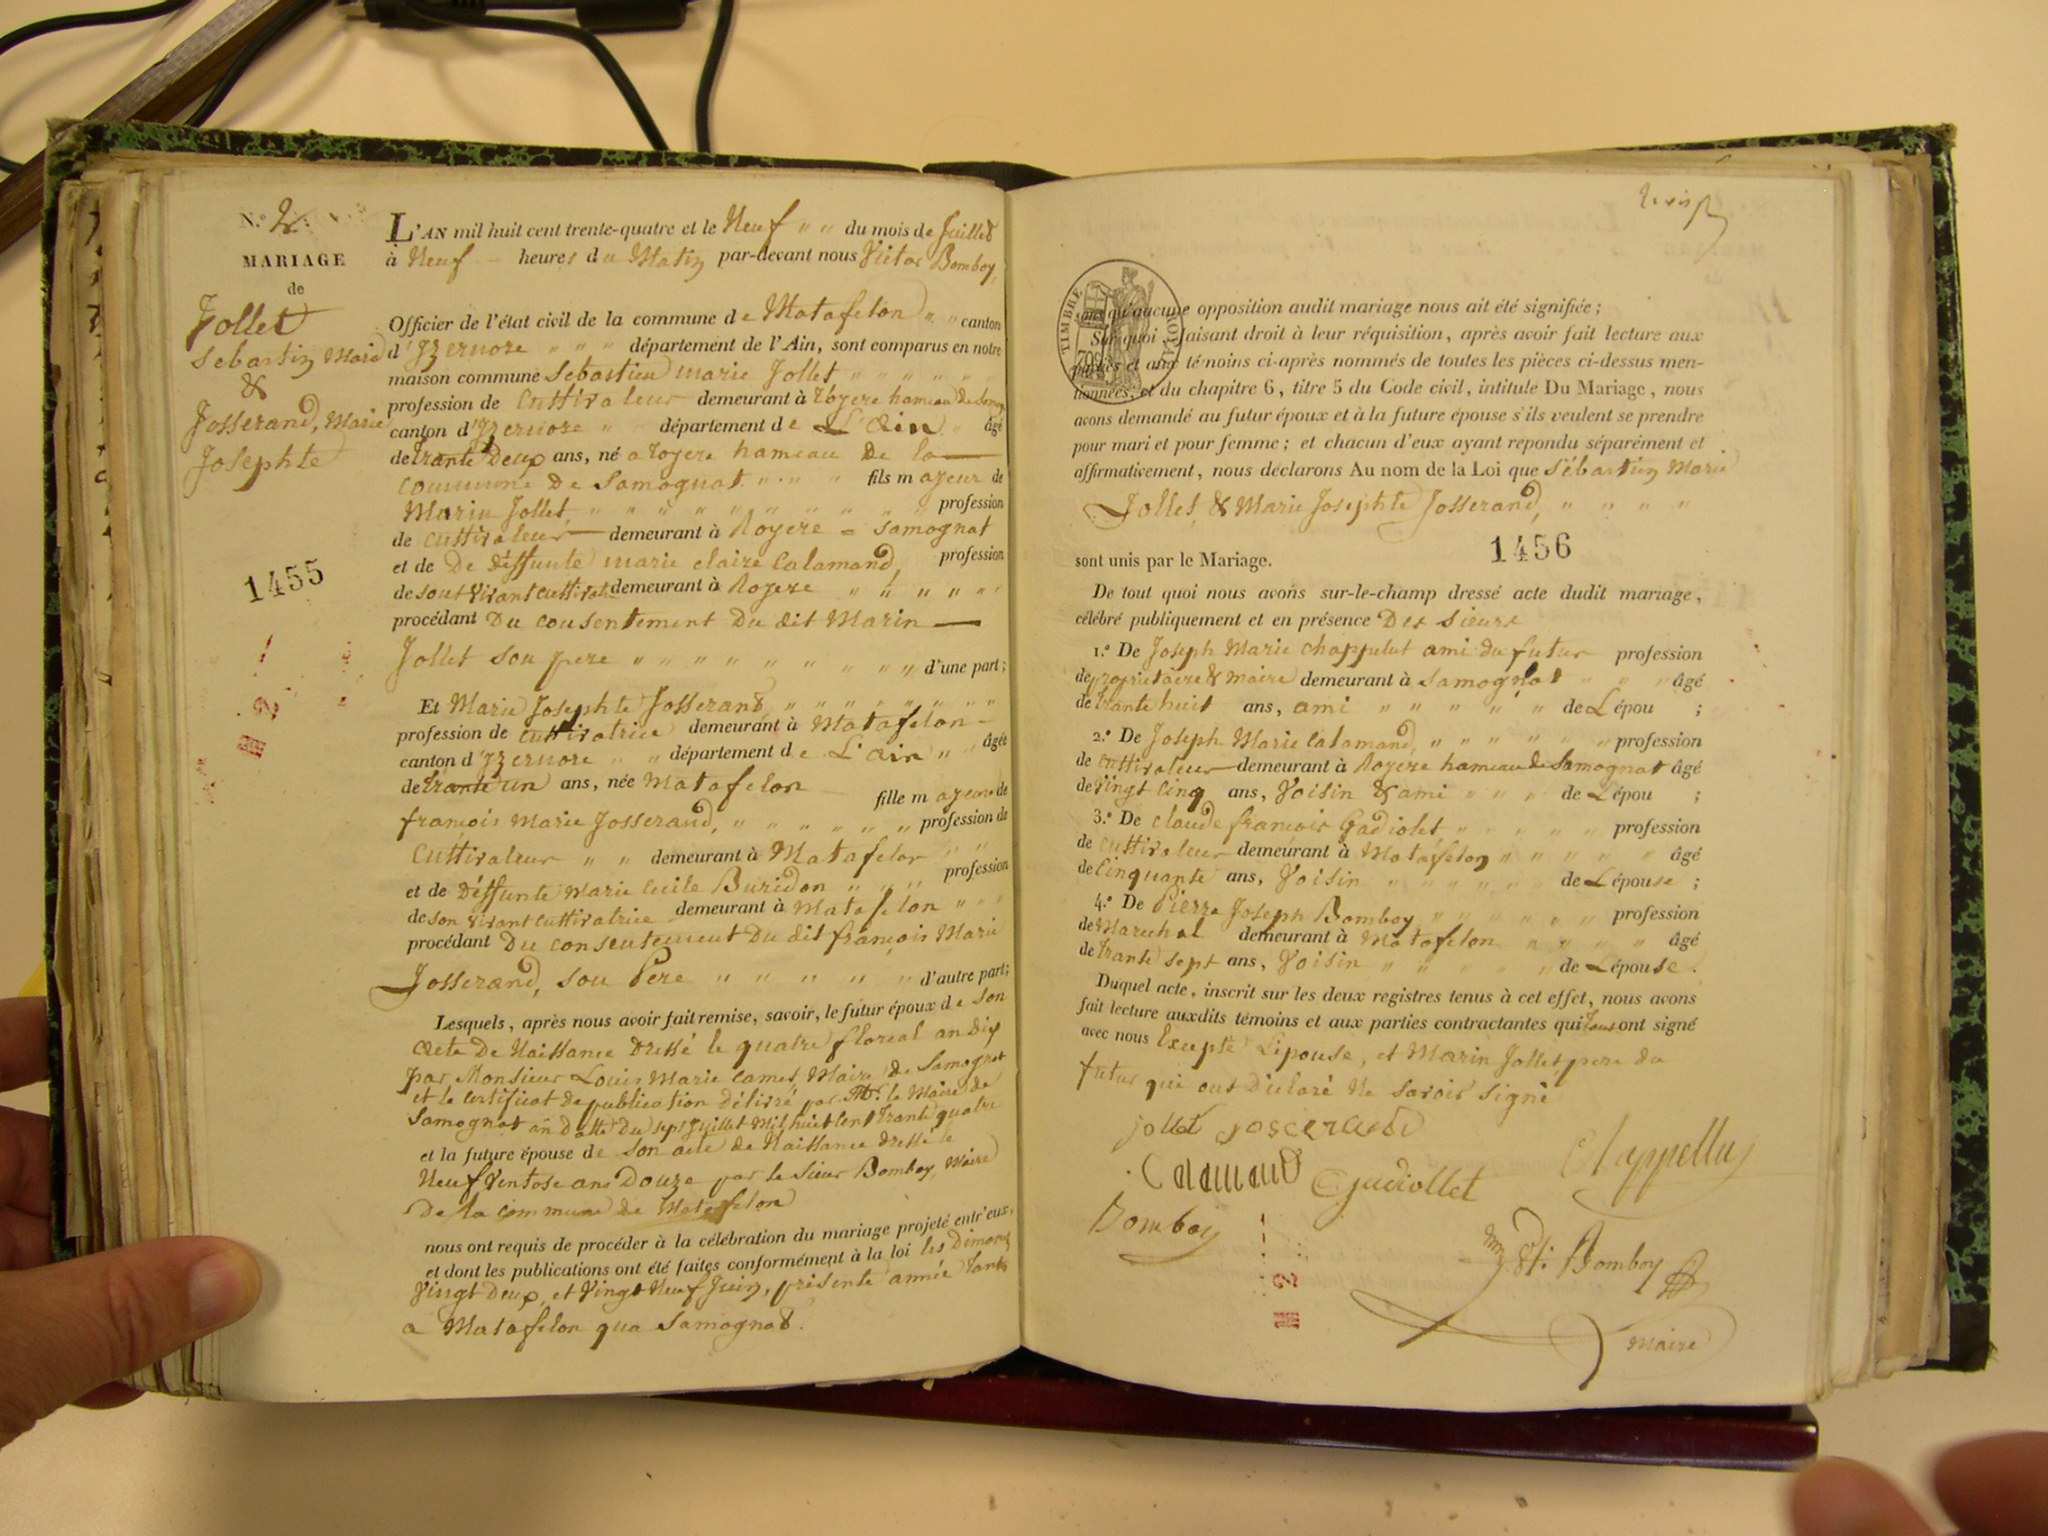 N.º 2.
MARIAGE
de
Jollet
Sebastien Marie
&
Josserand, Marie
Josephte
1455
L'AN mil huit cent trente-quatre et le Neuf " " du mois de Juillet
à Neuf heures du Matin par-devant nous Victor Bomboy,
Officier de l'état civil de la commune de Matafelon " " canton
d'Izernore " " " département de l'Ain, sont comparus en notre
maison commune Sebastien marie Jollet " " " " "
profession de Cuttivateur demeurant à Royere hameau de Samog
canton d'Izernore " département de L'Ain " âgé
de trante Deux ans, né a royere hameau de la
commune De Samognat " " " fils mayeur de
Marin Jollet, " " " " " " " " " profession
de cuttivateur demeurant à Royere = Samognat
et de De deffunte marie claire Calamand, profession
de sont vivant cuttivat demeurant à Royere " " " " "
procédant Du consentement Du dit Marin
Jollet son pere " " " " " " " " d'une part;
Et Marie Josephte Josserand, " " " " " " "
profession de cuttivatrice demeurant à Matafelon
canton d'Izernore " " département de L'Ain " " âgée
de trante un ans, née Matafelon fille mayeure de
françois Marie Josserand, " " " " " " profession de
Cuttivateur " " demeurant à Matafelon " "
et de Deffunte Marie Cecile Buridon " " " profession
de son vivant cuttivatrice demeurant à Matafelon " " "
procédant Du consentement Du dit françois Marie
Josserand, son Pere " " " " " " d'autre part;
Lesquels, après nous avoir fait remise, savoir, le futur époux de son
acte De Naissance dressé le quatre floreal an dix
par Monsieur Louis Marie Camet, Maire de Samognat
et le Certificat de publication délivré par Mr. le Maire de
Samognat an Datte Du sept Juillet Mil huit Cent Trante quatre
et la future épouse de son acte de Naissance dressé le
Neuf Ventose ans Douze par le sieur Bomboy, Maire
De la commune de Matafelon
nous ont requis de procéder à la célébration du mariage projeté entr'eux,
et dont les publications ont été faites conformément à la loi les Dimanch
Vingt Deux, et Vingt Neuf Juin, présente année tant
a Matafelon qua Samognat.
TIMBRE ROYAL
70 c
sans qu'aucune opposition audit mariage nous ait été signifiée;
Sur quoi faisant droit à leur réquisition, après avoir fait lecture aux
parties et aux témoins ci-après nommés de toutes les pièces ci-dessus men-
tionnées, et du chapitre 6, titre 5 du Code civil, intitulé Du Mariage, nous
avons demandé au futur époux et à la future épouse s'ils veulent se prendre
pour mari et pour femme; et chacun d'eux ayant répondu séparément et
affirmativement, nous déclarons Au nom de la Loi que Sébastien Marie
Jollet, & Marie Josephte Josserand, " " " "
1456
sont unis par le Mariage.
De tout quoi nous avons sur-le-champ dressé acte dudit mariage,
célébré publiquement et en présence Des sieurs
1.º De Joseph Marie chappelut ami du futur profession
de proprietaire & maire demeurant à Samognat " " " âgé
de trante huit ans, ami " " " " " de L'épou ;
2.º De Joseph Marie Calamand, " " " " " " profession
de cuttivateur demeurant à Royere hameau de Samognat âgé
de Vingt Cinq ans, Voisin & ami " " " de L'épou ;
3.º De claude françois Gadiolet " " " " " profession
de cuttivateur demeurant à Matafelon " " " " " âgé
de Cinquante ans, Voisin " " " " " " de L'épouse ;
4.º De Pierre Joseph Bomboy " " " " " " profession
de Marechal demeurant à Matafelon " " " " âgé
de trante sept ans, Voisin " " " " " " de L'épouse.
Duquel acte, inscrit sur les deux registres tenus à cet effet, nous avons
fait lecture auxdits témoins et aux parties contractantes qui tous ont signé
avec nous Excepté L'épouse, et Marin Jollet, pere du
futur qui ont Déclaré Ne savoir signé
jollet joscerand
Chappellut
Calamand Gadiollet
Bomboy
Bomboy
maire